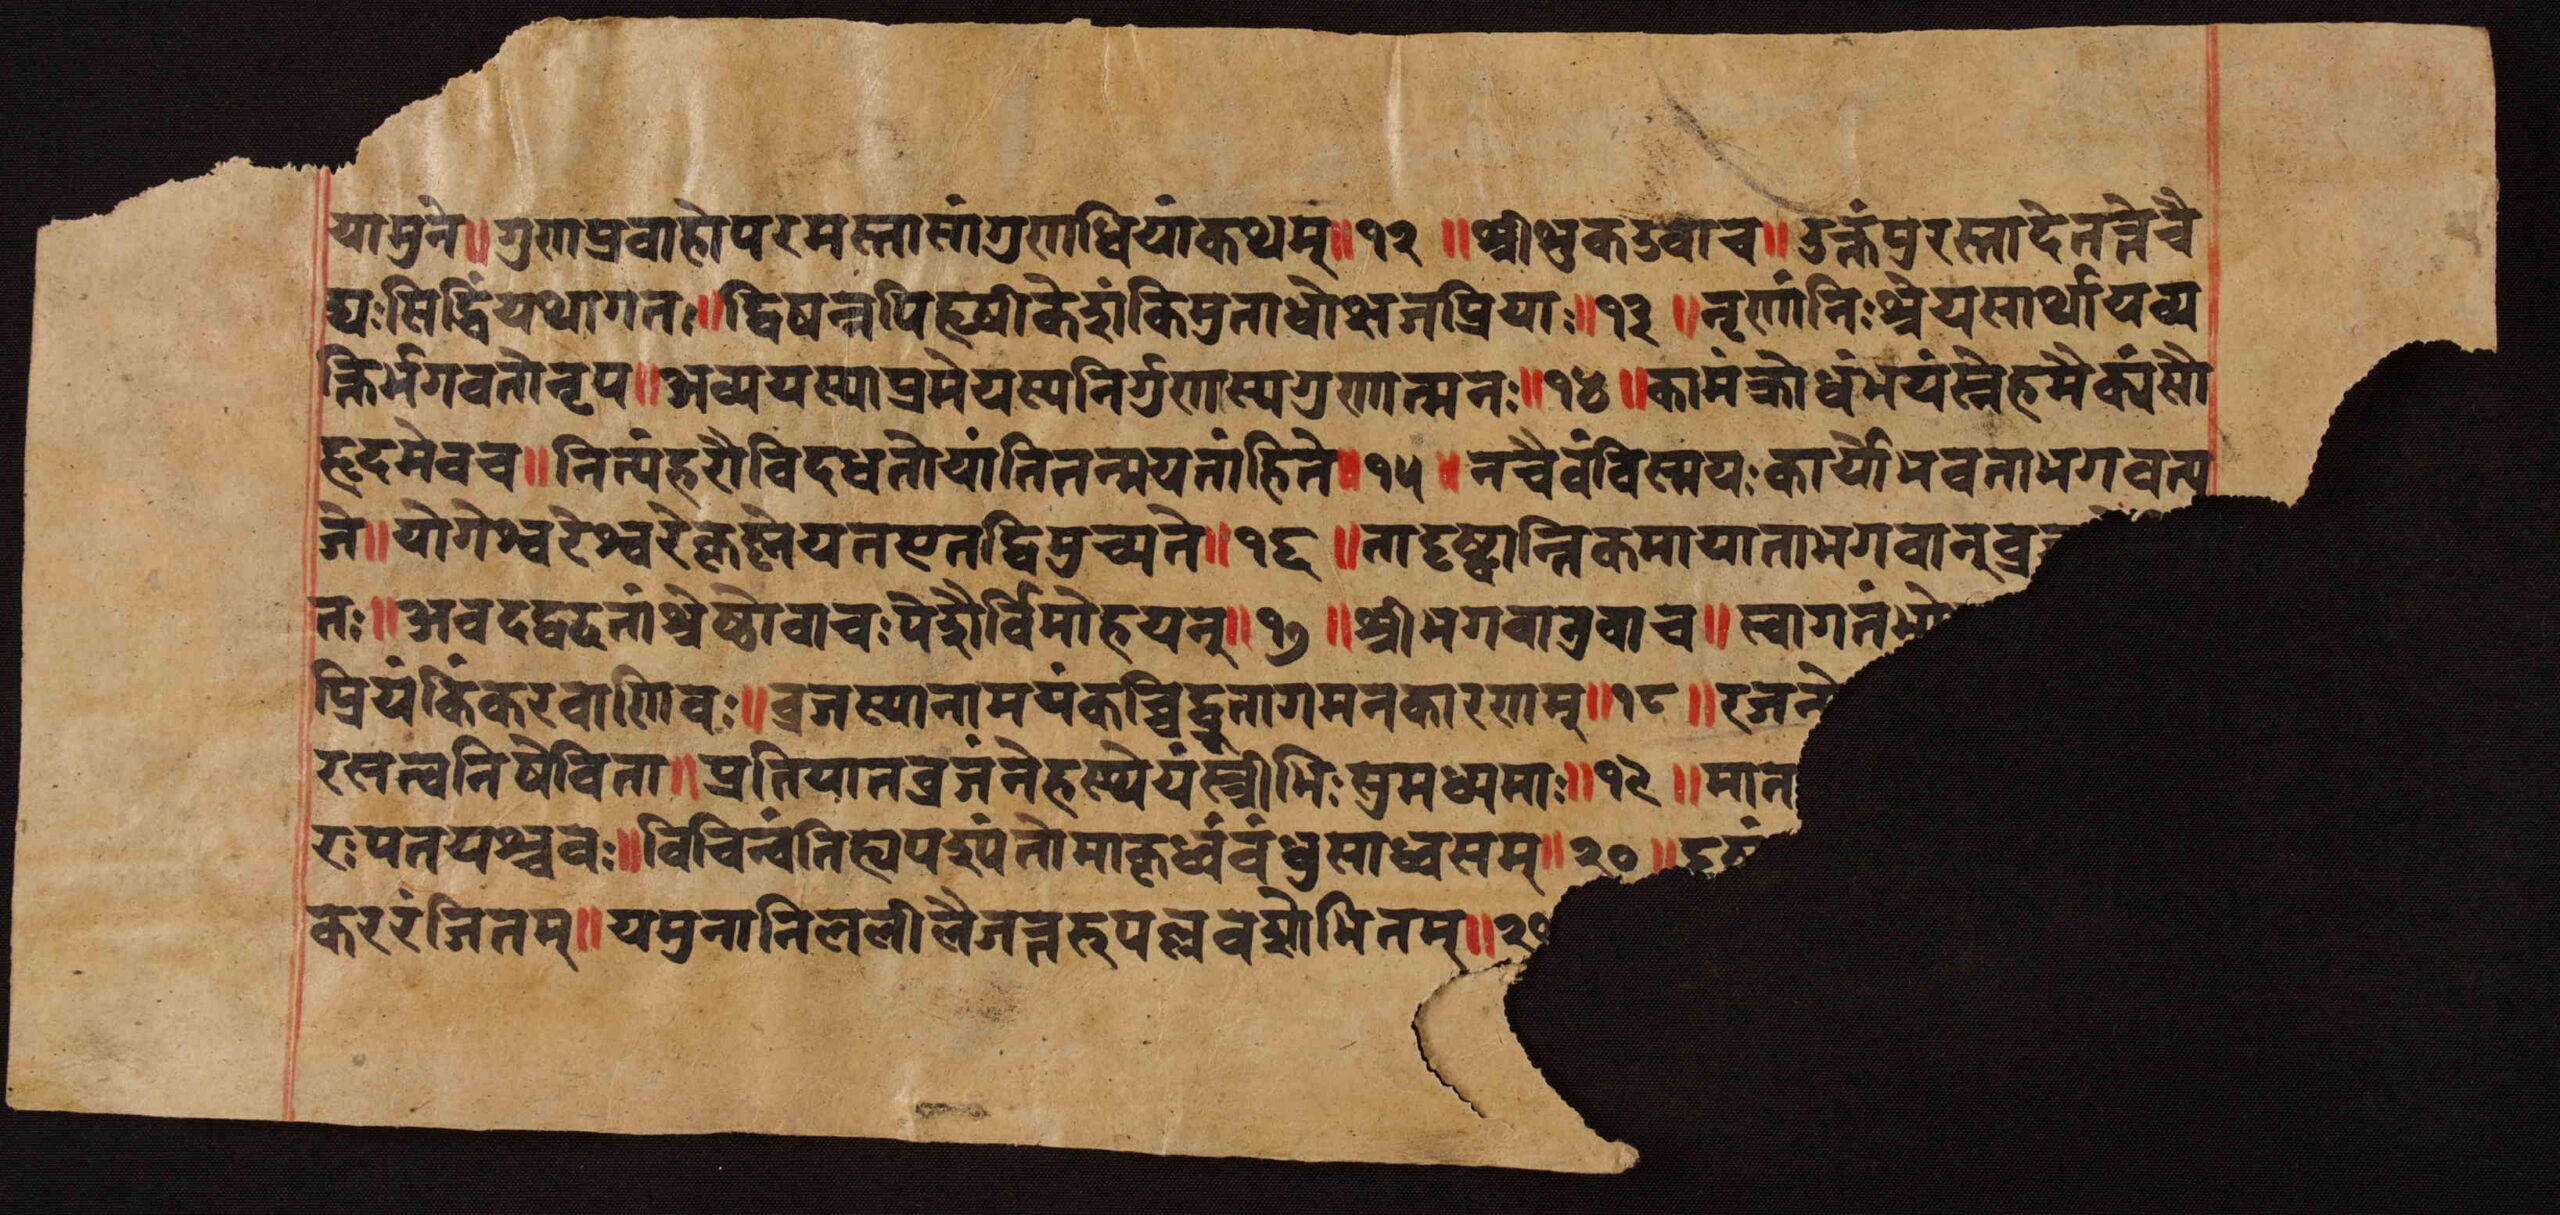 यामुने॥ गुणप्रवाहोपरमस्तासांगुणधियांकथम्॥१२॥ श्रीशुकउवाच॥ उक्तंपुरस्तादेतत्तेचै
द्यःसिद्धिंयथागतः॥ द्विषन्नपिहृषीकेशंकिमुताधोक्षजप्रियाः॥१३॥ नृणांनिःश्रेयसार्थायव्य
क्तिर्भगवतोनृप॥ अव्ययस्याप्रमेयस्यनिर्गुणस्यगुणात्मनः॥१४॥ कामंक्रोधंभयंस्नेहमैक्यंसौ
हृदमेवच॥ नित्यंहरौविदधतोयांतितन्मयतांहिते॥१५॥ नचैवंविस्मयःकार्योभवताभगवत्य
जे॥ योगेश्वरेश्वरेकृष्णेयतएतद्विमुच्यते॥१६॥ तादृष्ट्वान्तिकमायाताभगवान्व्रज
तः॥ अवदद्वदतांश्रेष्ठोवाचःपेशैर्विमोहयन्॥१७॥ श्रीभगवानुवाच॥ स्वागतंभो
प्रियंकिंकरवाणिवः॥ व्रजस्यानामयंकच्चिद्ब्रूतागमनकारणम्॥१८॥ रजन्ये
रसत्त्वनिषेविता॥ प्रतियातव्रजंनेहस्थेयंस्त्रीभिःसुमध्यमाः॥१९॥ मात
रःपतयश्चवः॥ विचिन्वंतिह्यपश्यंतोमाकृध्वंबंधुसाध्वसम्॥२०॥ दृष्टं
कररंजितम्॥ यमुनानिललीलैजत्तरुपल्लवशोभितम्॥२१